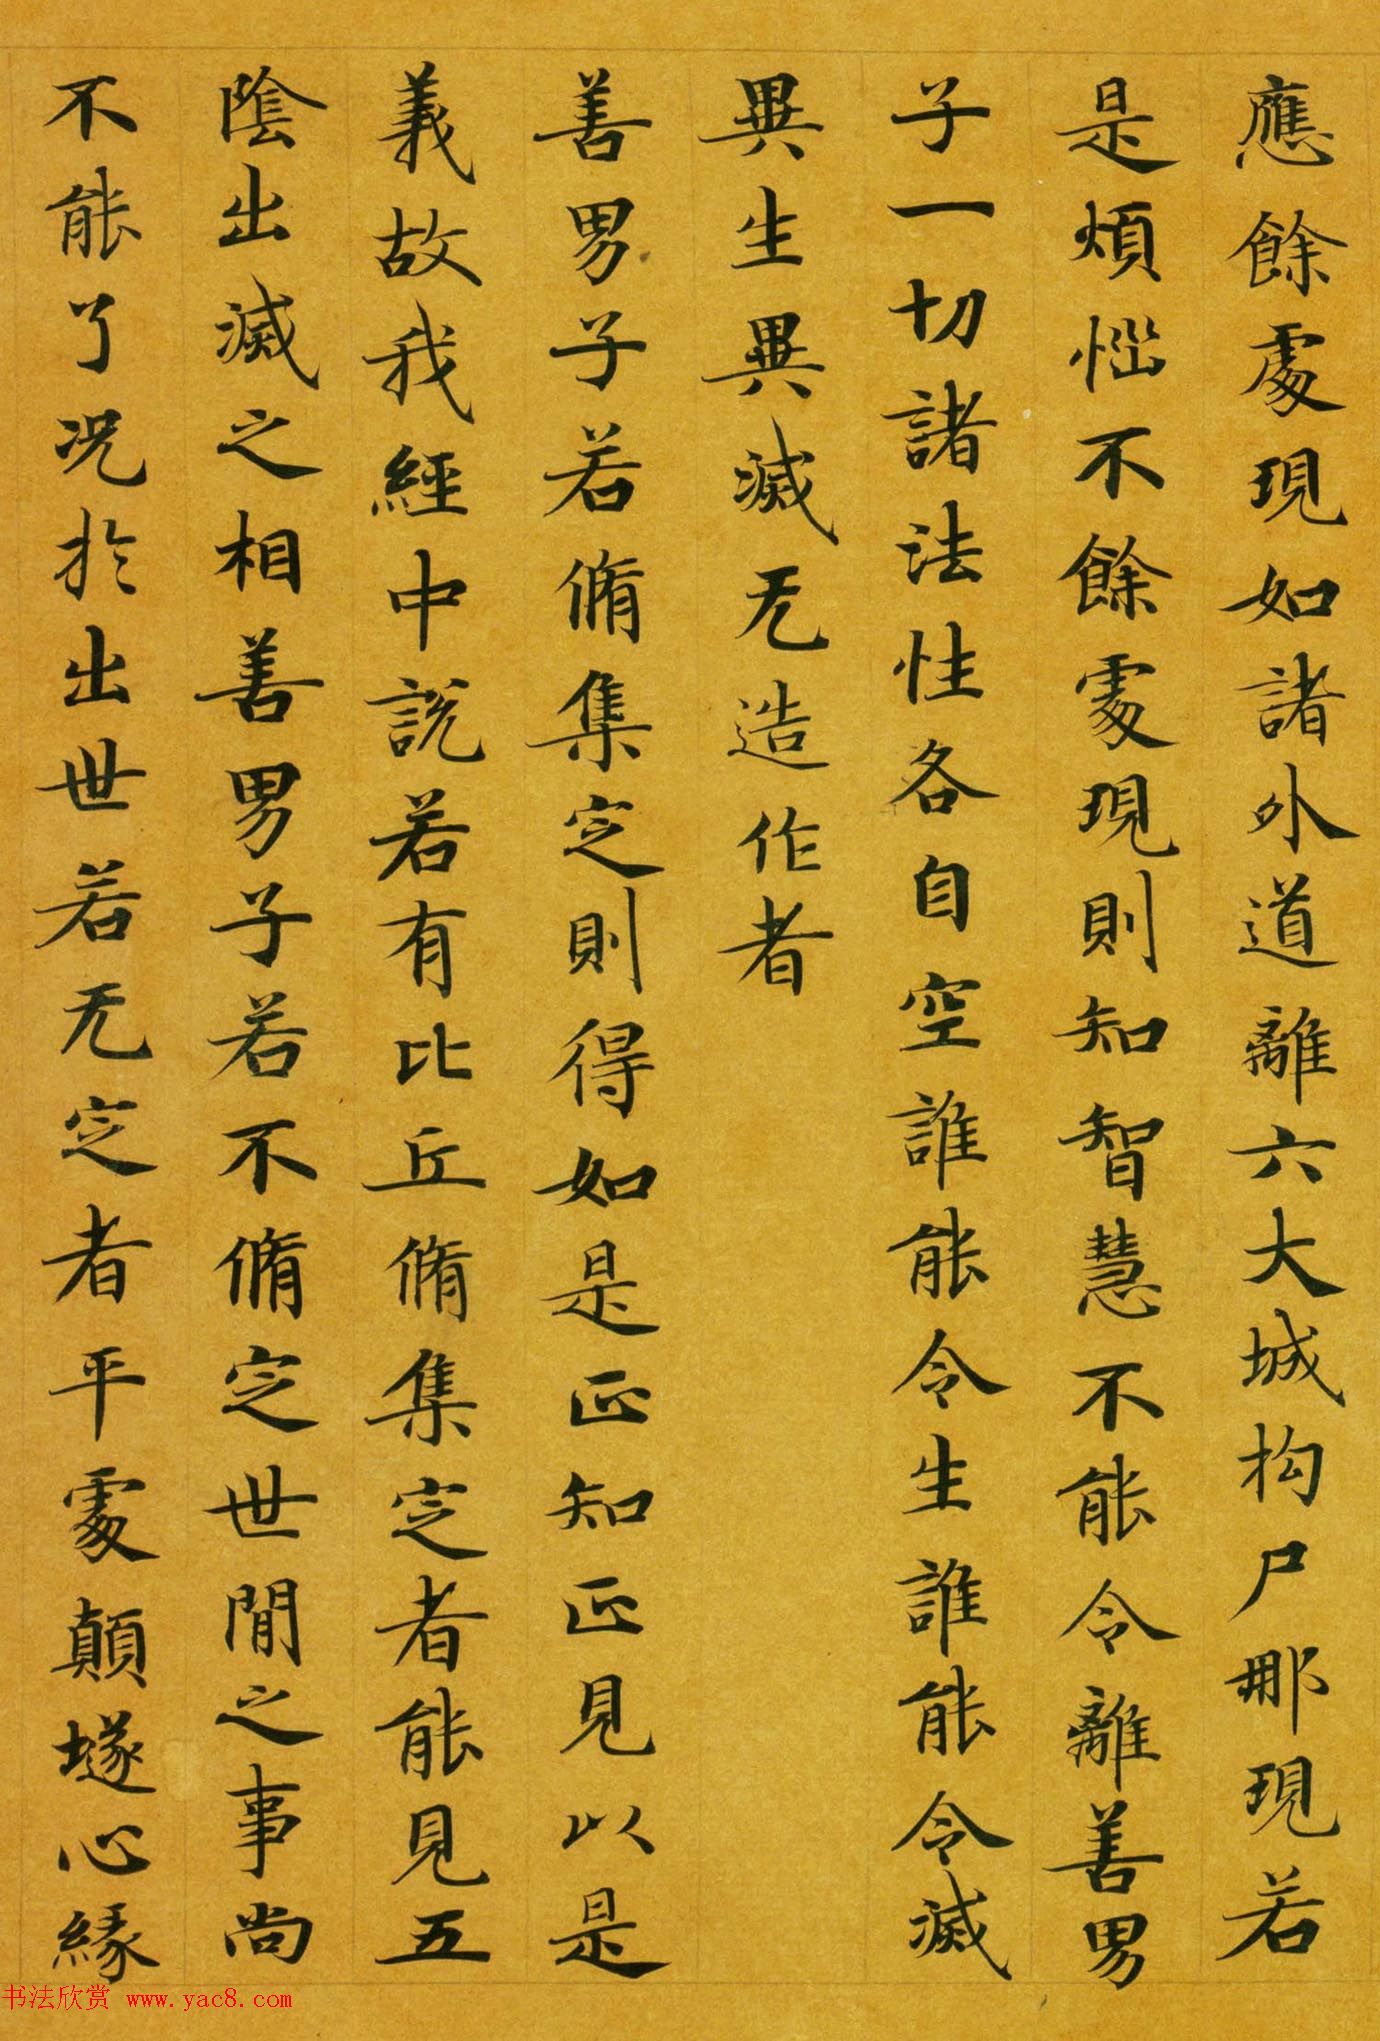 應餘處現如諸外道離六大城构尸那現若
是煩惱不餘處現則知智慧不能令離善男
子一切諸法性各自空誰能令生誰能令滅
異生異滅无造作者
善男子若脩集定則得如是正知正見以是
義故我經中說若有比丘脩集定者能見五
陰出滅之相善男子若不脩定世間之事尚
不能了況於出世若无定者平處顛墜心緣
书法欣赏 www.yac8.com